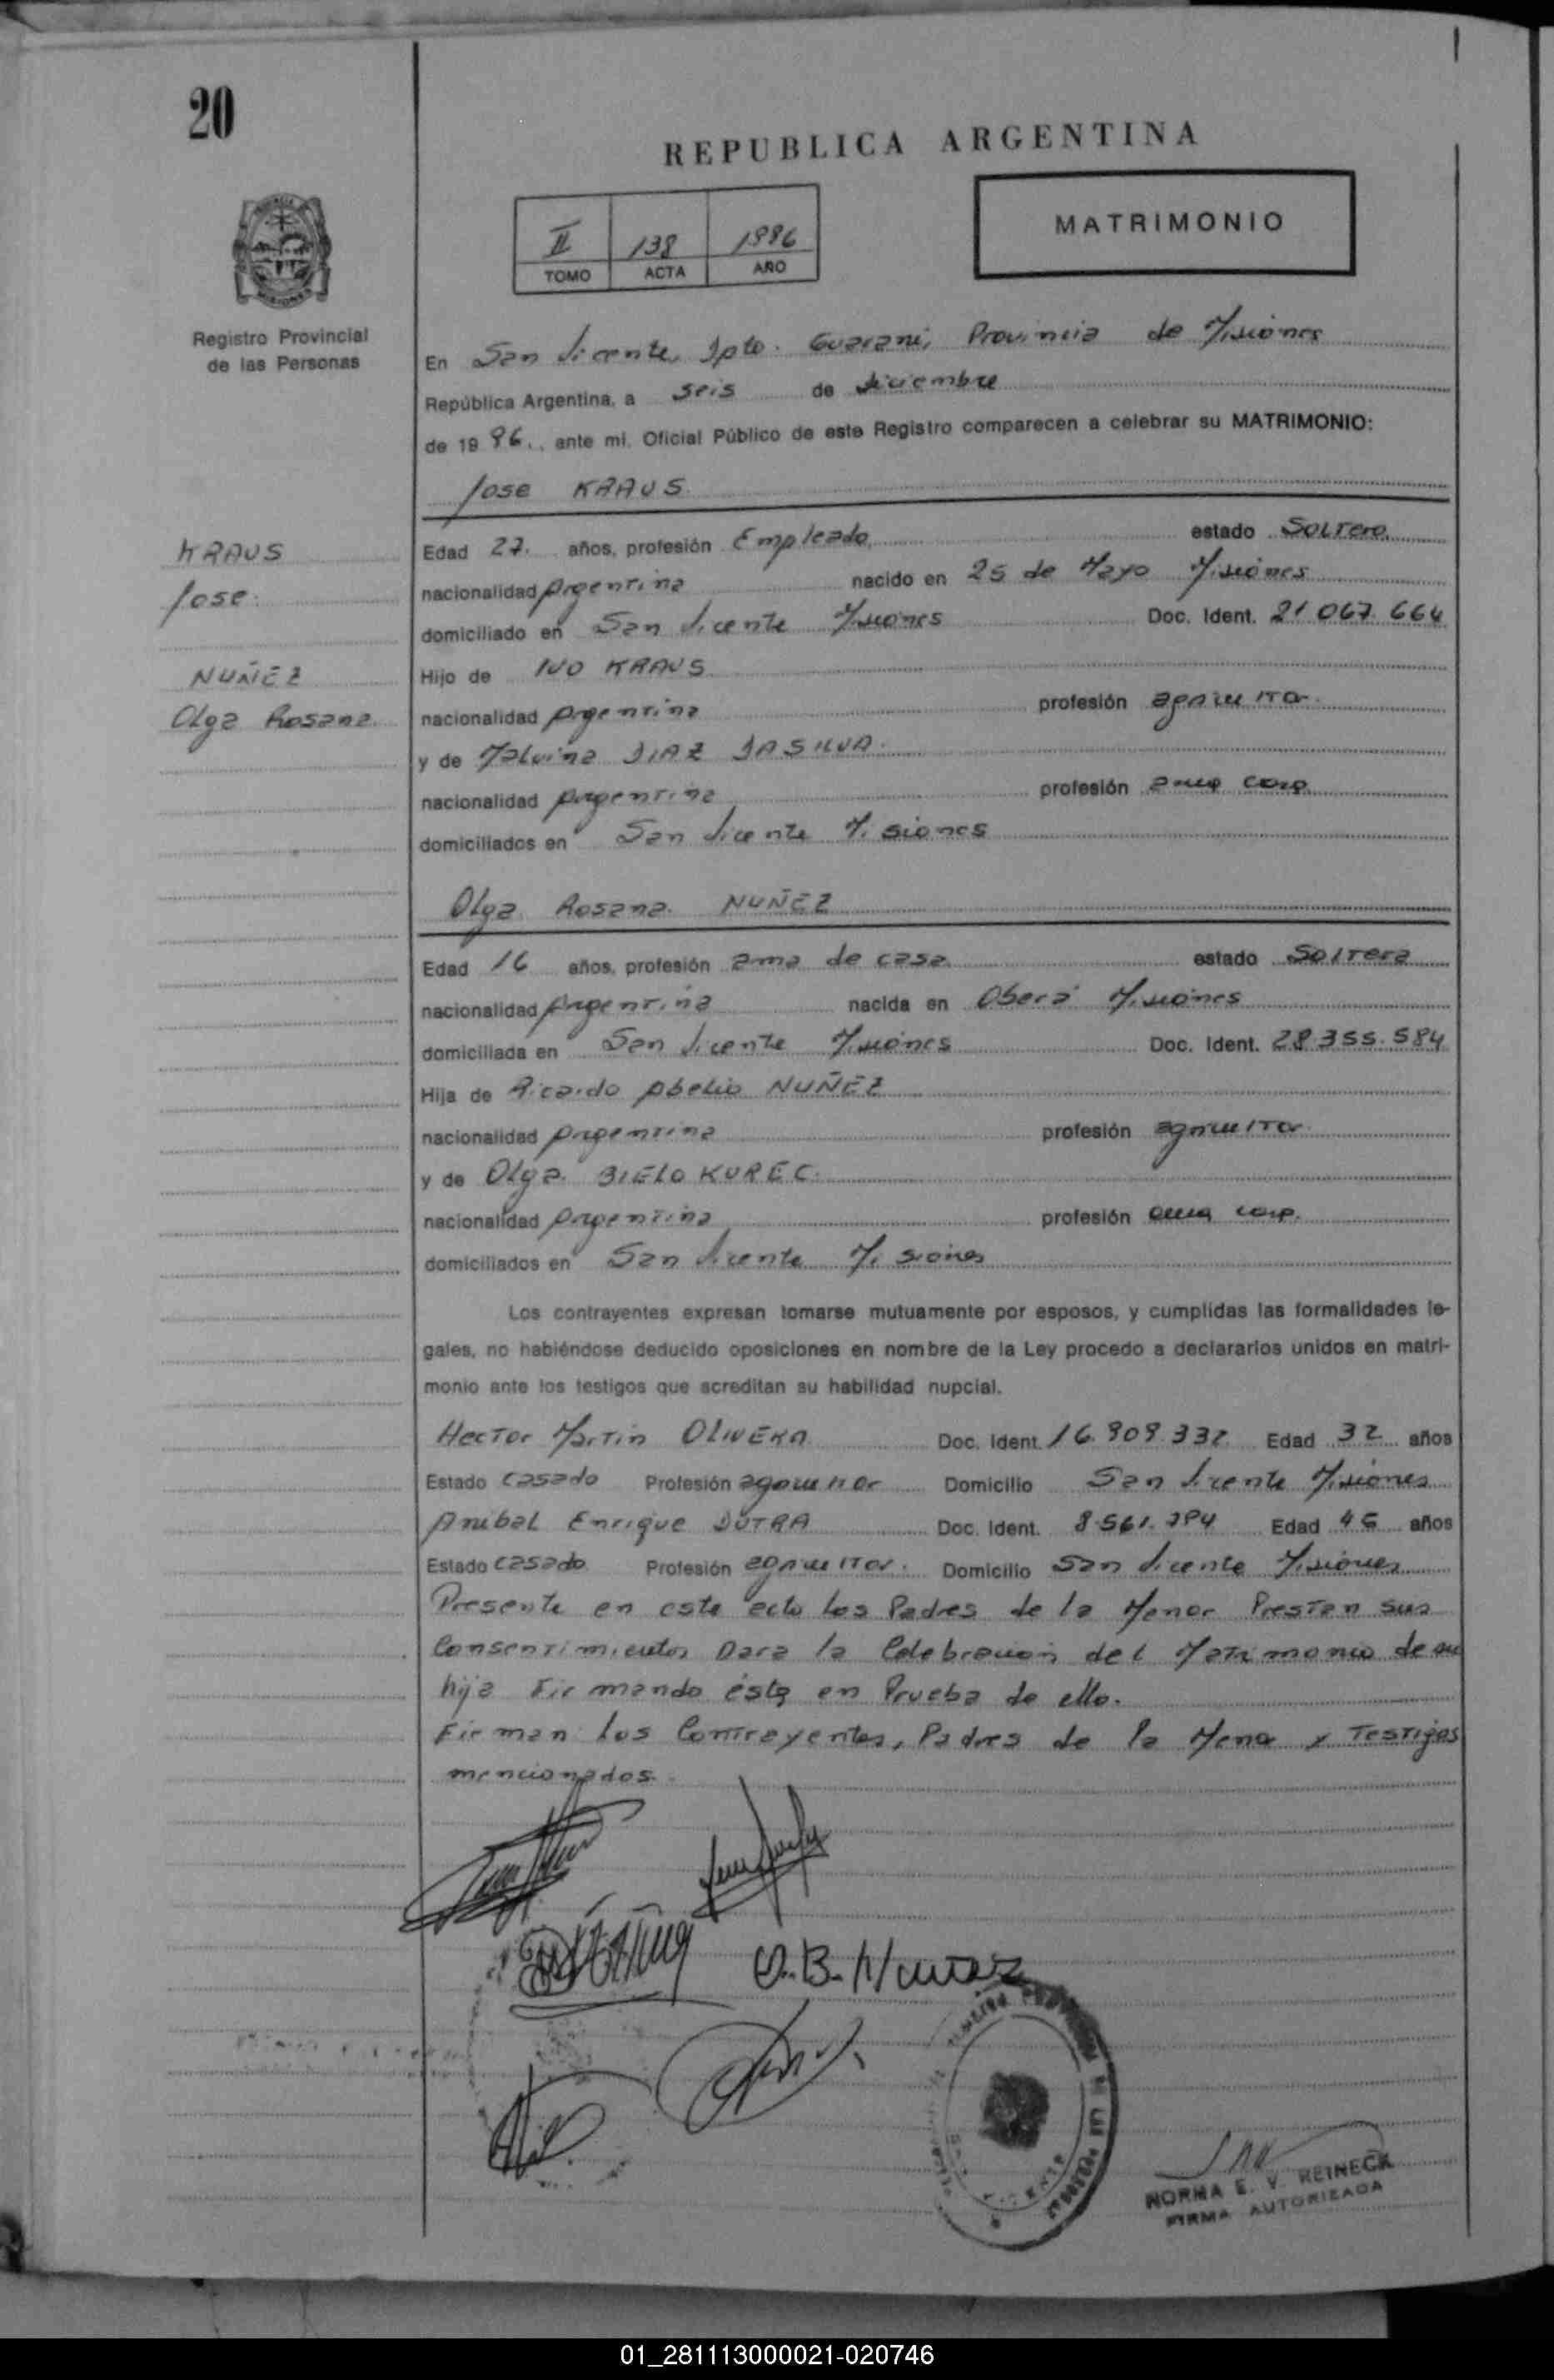 20
REPUBLICA ARGENTINA
II 138 1996
TOMO ACTA AÑO
MATRIMONIO
Registro Provincial
de las Personas
En San Vicente, Dpto. Guarani, Provincia de Misiones
República Argentina, a seis de diciembre
de 19 96., ante mi, Oficial Público de este Registro comparecen a celebrar su MATRIMONIO:
Jose KRAUS
KRAUS
Jose
NUÑEZ
Olga Rosana
Edad 27. años, profesión Empleado estado Soltero
nacionalidad Argentina nacido en 25 de Mayo Misiones
domiciliado en San Vicente Misiones Doc. Ident. 21.067.664
Hijo de IVO KRAUS
nacionalidad Argentina profesión agricultor
y de Malvina DIAZ DASILVA
nacionalidad Argentina profesión ama casa
domiciliados en San Vicente Misiones
Olga Rosana NUÑEZ
Edad 16 años, profesión ama de casa estado Soltera
nacionalidad Argentina nacida en Oberá Misiones
domiciliada en San Vicente Misiones Doc. Ident. 28.355.584
Hija de Ricardo Abelio NUÑEZ
nacionalidad Argentina profesión agricultor
y de Olga BIELOKUREC
nacionalidad Argentina profesión ama casa
domiciliados en San Vicente Misiones
Los contrayentes expresan tomarse mutuamente por esposos, y cumplidas las formalidades le-
gales, no habiéndose deducido oposiciones en nombre de la Ley procedo a declararlos unidos en matri-
monio ante los testigos que acreditan su habilidad nupcial.
Hector Martin OLIVERA Doc. Ident. 16.909.332 Edad 32 años
Estado casado Profesión agricultor Domicilio San Vicente Misiones
Anibal Enrique DUTRA Doc. Ident. Edad 46 años
Estado casado Profesión agricultor Domicilio San Vicente Misiones
Presente en este acto los Padres de la Menor Prestan sus
Consentimientos para la Celebracion del Matrimonio de su
hija Firmando ésta en Prueba de ello.
Firman los Contrayentes, Padres de la Menor y Testigos
mencionados
O.B. Nuñez
NORMA E. V. REINECK
FIRMA AUTORIZADA
01_281113000021-020746